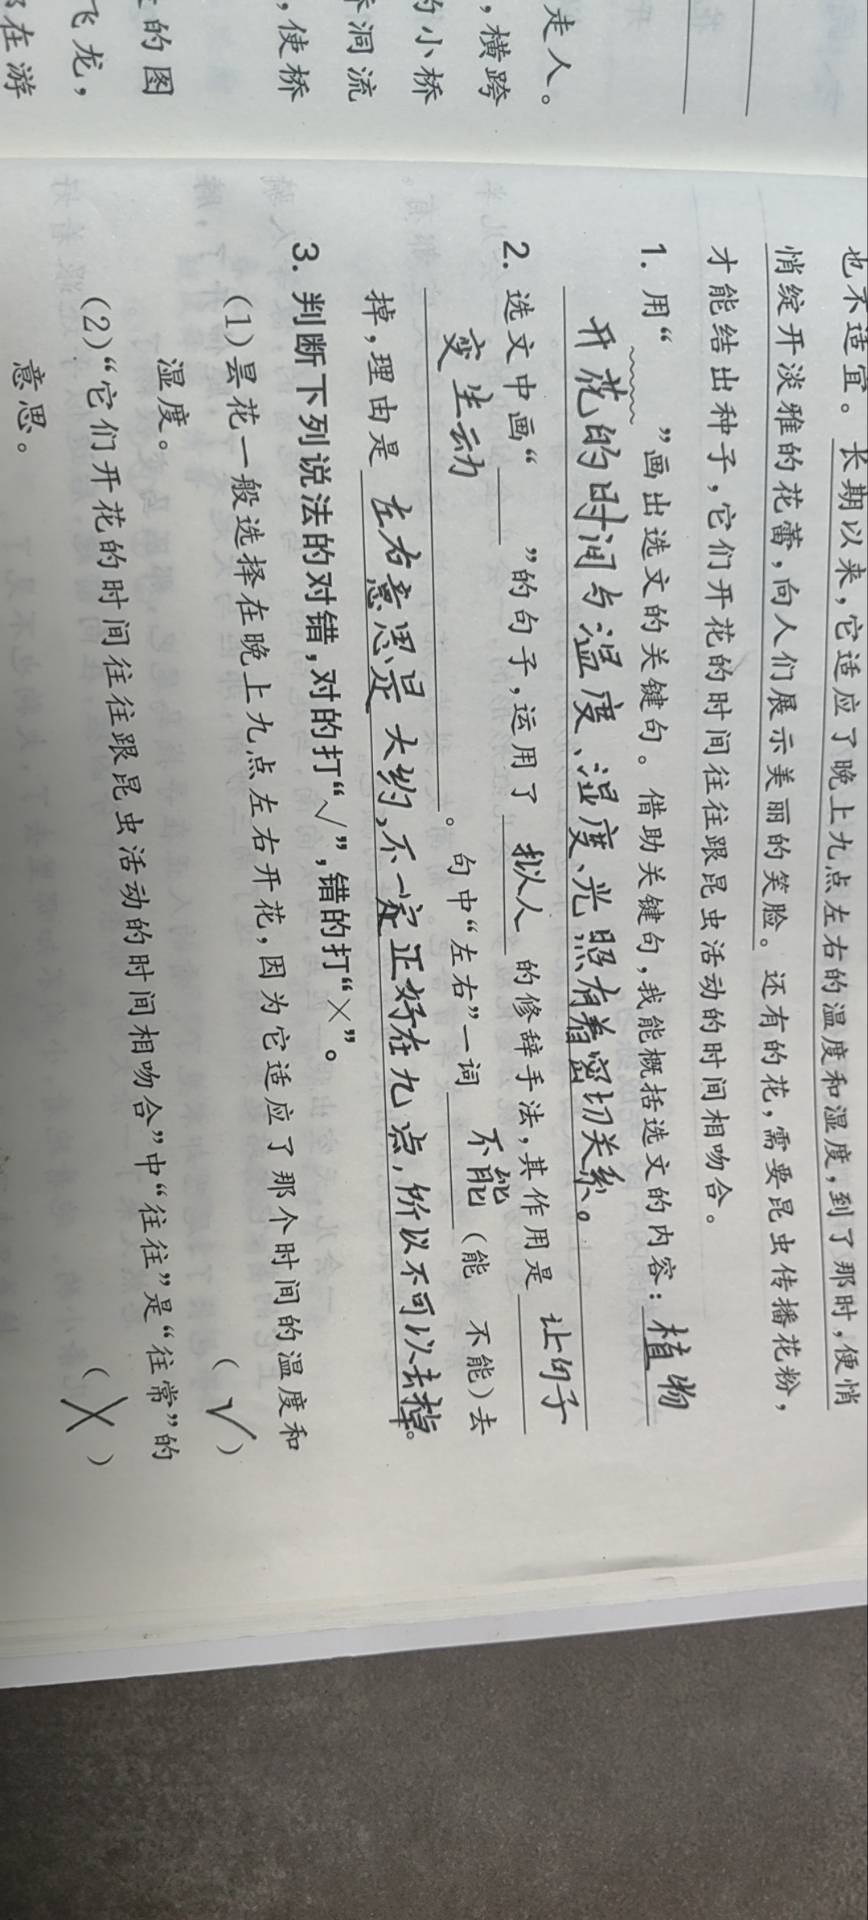 走人。
，横跨
的小桥
洞流
，使桥
的图
飞龙，
在游
也不适宜。长期以来，它适应了晚上九点左右的温度和湿度，到了那时，便悄
悄绽开淡雅的花蕾，向人们展示美丽的笑脸。还有的花，需要昆虫传播花粉，
才能结出种子，它们开花的时间往往跟昆虫活动的时间相吻合。
1. 用“﹏﹏”画出选文的关键句。借助关键句，我能概括选文的内容：植物
开花的时间与温度、湿度、光照有着密切关系。
2. 选文中画“____”的句子，运用了 拟人 的修辞手法，其作用是 让句子
变生动 。句中“左右”一词 不能 （能 不能）去
掉，理由是 左右意思是大约，不一定正好在九点，所以不可以去掉。
3. 判断下列说法的对错，对的打“√”，错的打“×”。
（1）昙花一般选择在晚上九点左右开花，因为它适应了那个时间的温度和
湿度。 （√）
（2）“它们开花的时间往往跟昆虫活动的时间相吻合”中“往往”是“往常”的
意思。 （×）